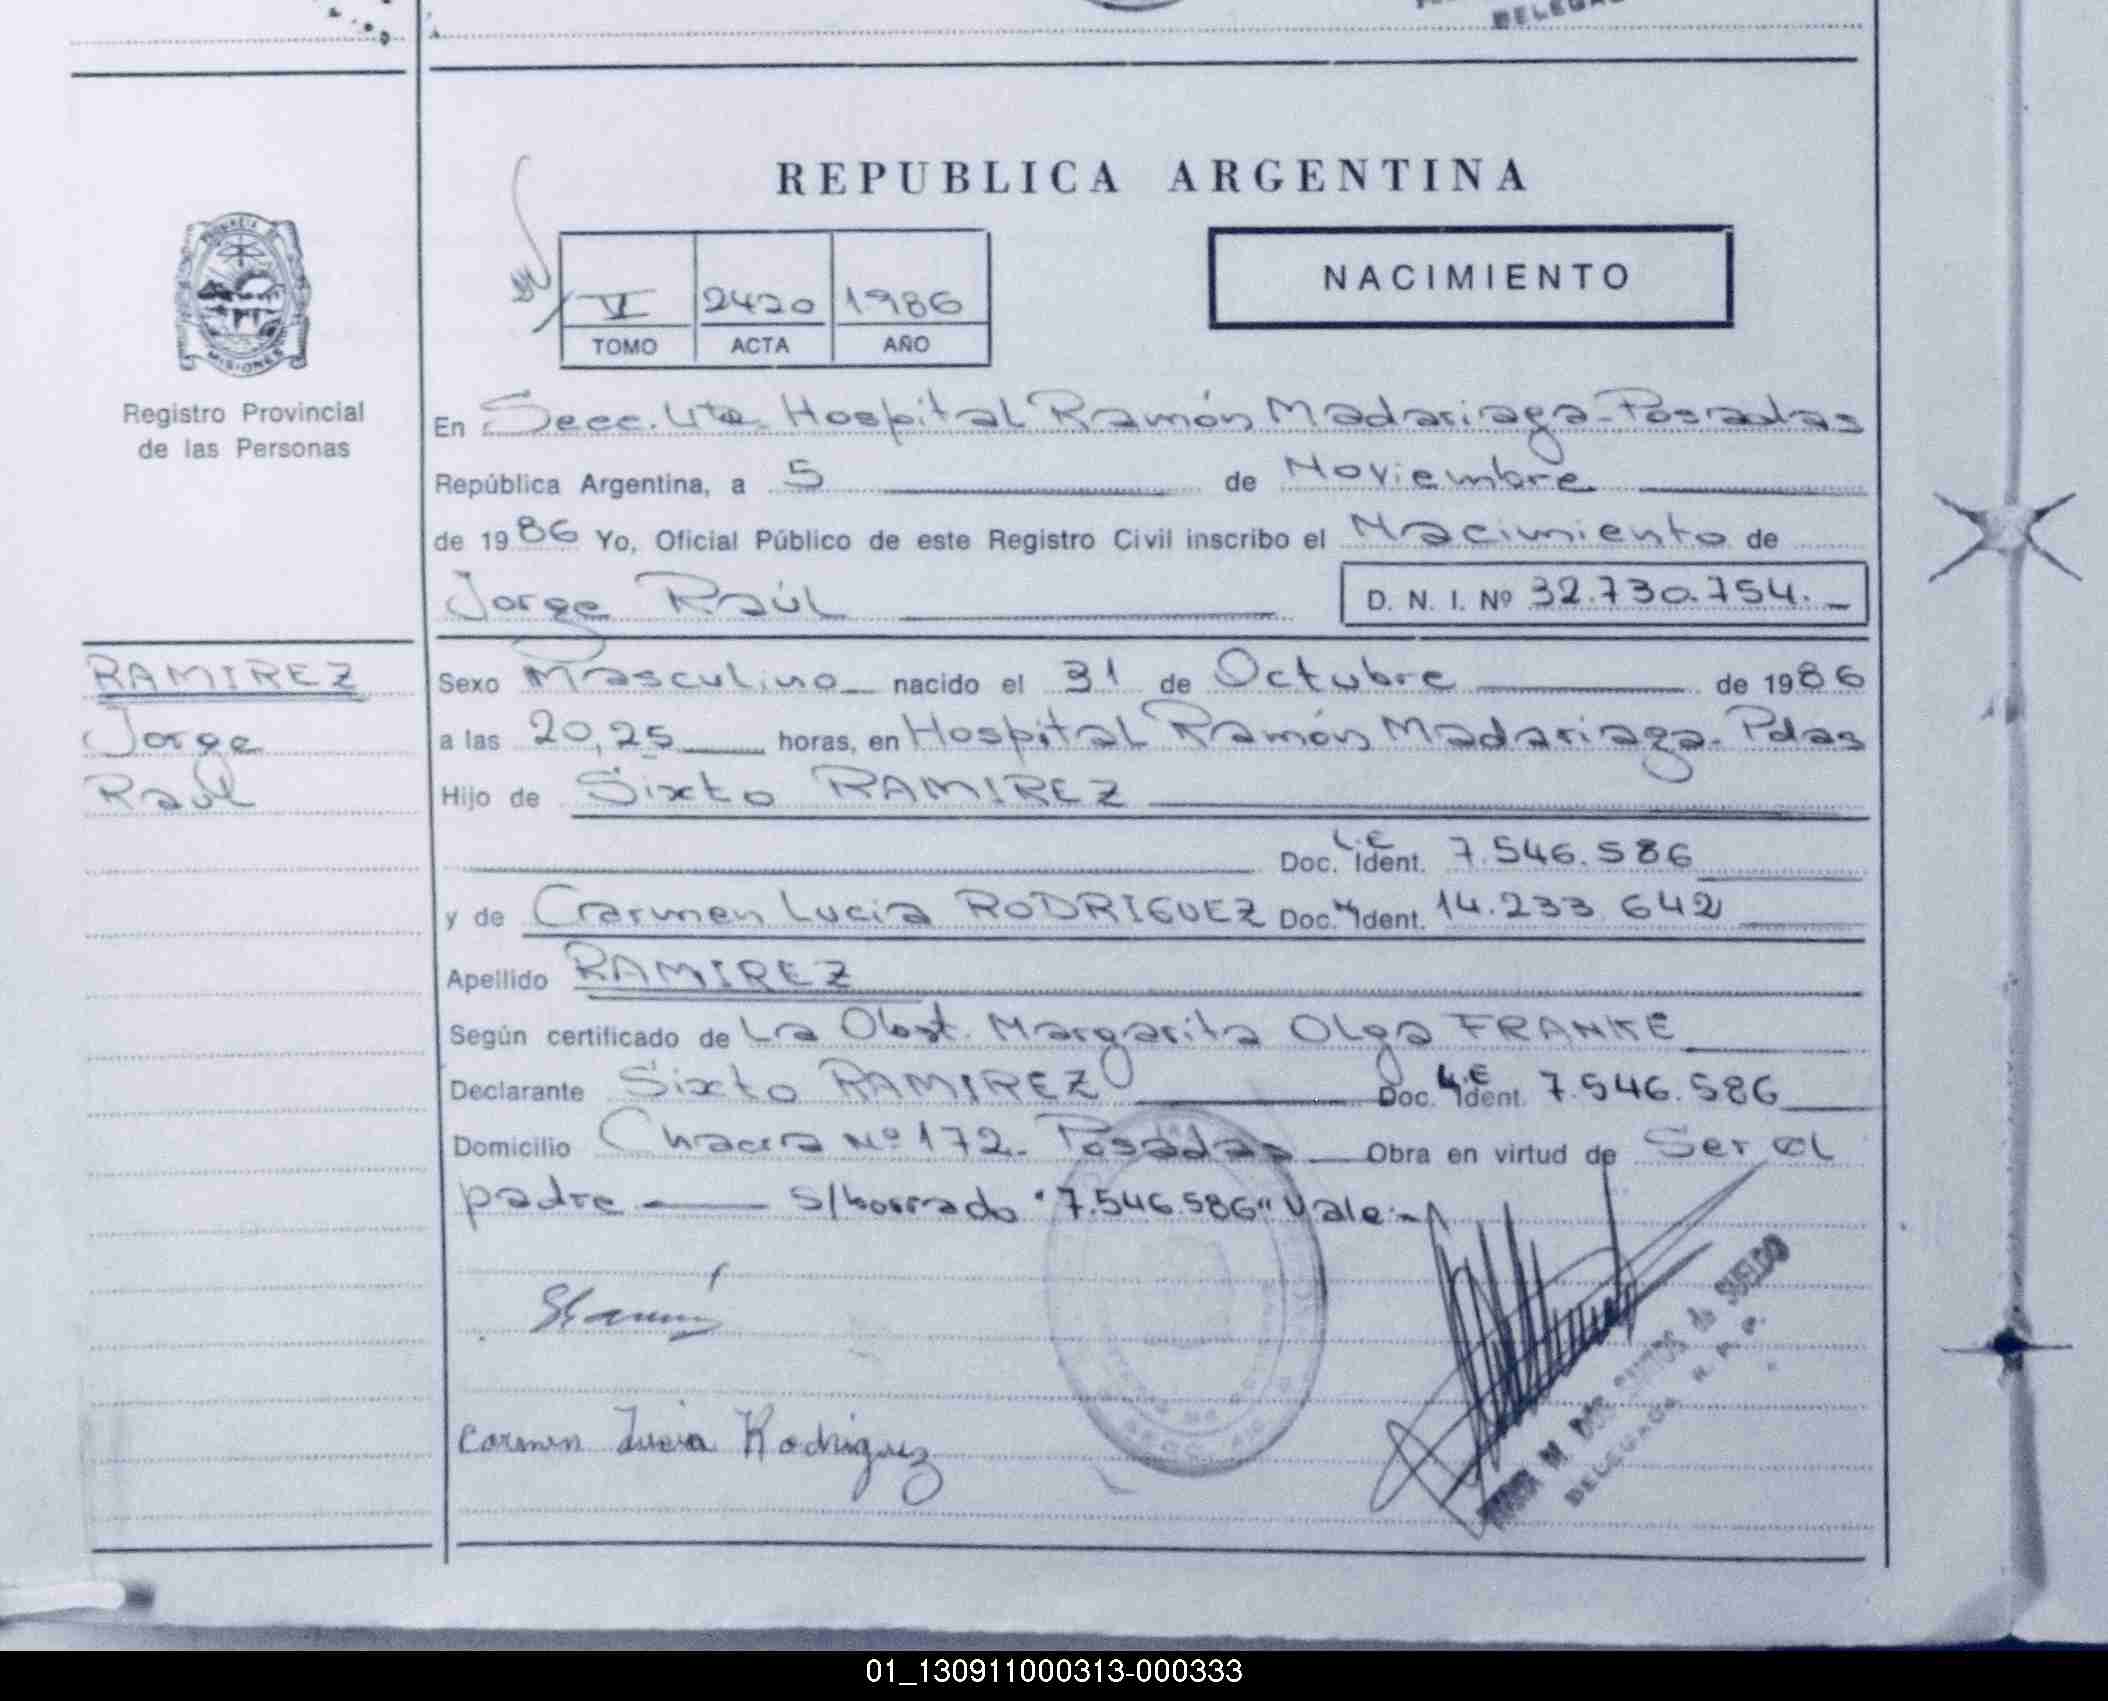 DELEGA
REPUBLICA ARGENTINA
PROVINCIA DE
MISIONES
Registro Provincial
de las Personas
VI 2420 1986
TOMO ACTA AÑO
NACIMIENTO
En Secc. 4ta. Hospital Ramón Madariaga-Posadas
República Argentina, a 5 de Noviembre
de 1986 Yo, Oficial Público de este Registro Civil inscribo el Nacimiento de
Jorge Raúl D. N. I. Nº 32.730.754.-
RAMIREZ
Jorge
Raúl
Sexo Masculino nacido el 31 de Octubre de 1986
a las 20,25 horas, en Hospital Ramón Madariaga-Pdas
Hijo de Sixto RAMIREZ
Doc. L.E Ident. 7.546.586
y de Carmen Lucia RODRIGUEZ Doc. Ident. 14.233.642
Apellido RAMIREZ
Según certificado de La Obst. Margarita Olga FRANKE
Declarante Sixto RAMIREZ Doc. L.E Ident. 7.546.586
Domicilio Chacra Nº 172- Posadas Obra en virtud de Ser el
padre s/borrado "7.546.586" Vale-
Carmen Lucia Rodriguez
de SUELDO
DELEGADA R. P. P.
01_130911000313-000333